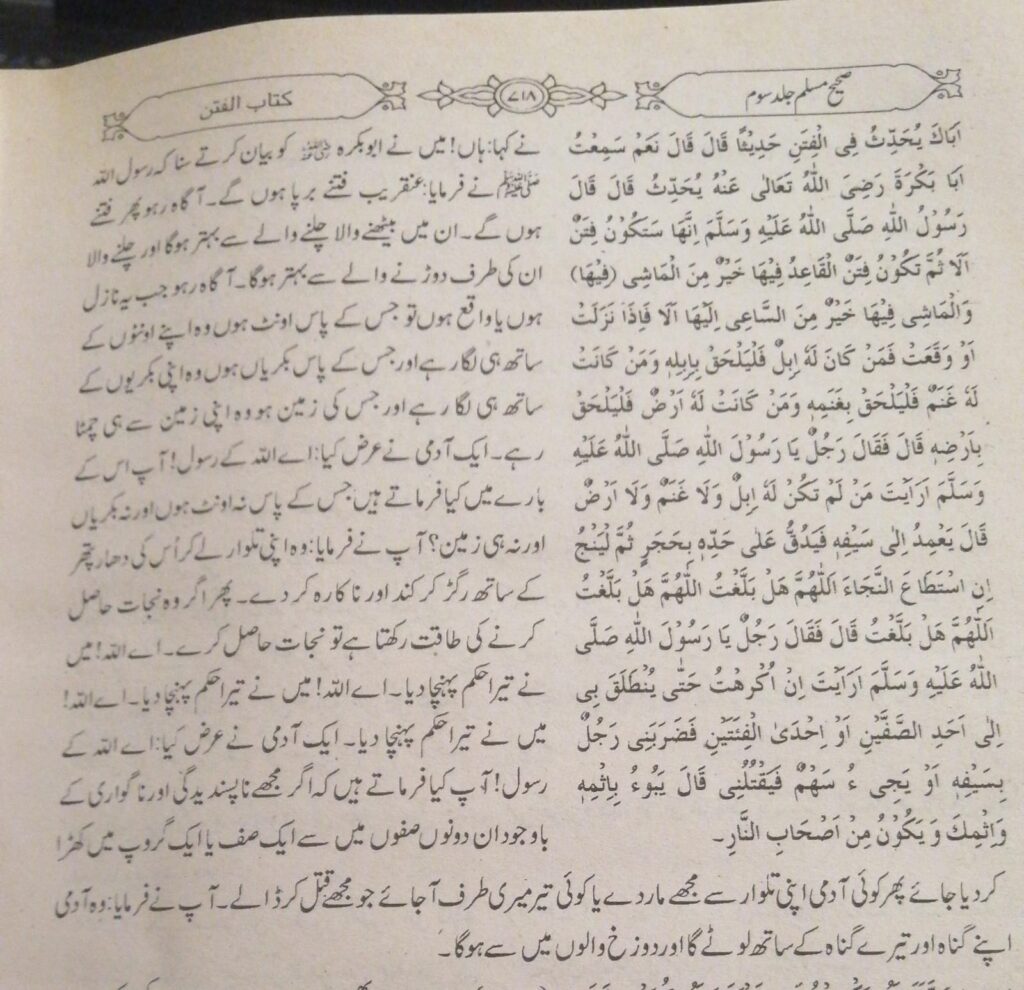 صحیح مسلم جلد سوم
۷۱۸
کتاب الفتن
اَبَاكَ يُحَدِّثُ فِى الْفِتَنِ حَدِيْثًا قَالَ قَالَ نَعَمْ سَمِعْتُ
اَبَا بَكْرَةَ رَضِىَ اللّٰهُ تَعَالٰى عَنْهُ يُحَدِّثُ قَالَ قَالَ
رَسُوْلُ اللّٰهِ صَلَّى اللّٰهُ عَلَيْهِ وَسَلَّمَ اِنَّهَا سَتَكُوْنُ فِتَنٌ
اَلَا ثُمَّ تَكُوْنُ فِتَنٌ الْقَاعِدُ فِيْهَا خَيْرٌ مِنَ الْمَاشِى (فِيْهَا)
وَالْمَاشِى فِيْهَا خَيْرٌ مِنَ السَّاعِى اِلَيْهَا اَلَا فَاِذَا نَزَلَتْ
اَوْ وَقَعَتْ فَمَنْ كَانَ لَهٗ اِبِلٌ فَلْيَلْحَقْ بِاِبِلِهٖ وَمَنْ كَانَتْ
لَهٗ غَنَمٌ فَلْيَلْحَقْ بِغَنَمِهٖ وَمَنْ كَانَتْ لَهٗ اَرْضٌ فَلْيَلْحَقْ
بِاَرْضِهٖ قَالَ فَقَالَ رَجُلٌ يَا رَسُوْلَ اللّٰهِ صَلَّى اللّٰهُ عَلَيْهِ
وَسَلَّمَ اَرَاَيْتَ مَنْ لَمْ تَكُنْ لَهٗ اِبِلٌ وَلَا غَنَمٌ وَلَا اَرْضٌ
قَالَ يَعْمِدُ اِلٰى سَيْفِهٖ فَيَدُقُّ عَلٰى حَدِّهٖ بِحَجَرٍ ثُمَّ لْيَنْجُ
اِنِ اسْتَطَاعَ النَّجَاءَ اَللّٰهُمَّ هَلْ بَلَّغْتُ اللّٰهُمَّ هَلْ بَلَّغْتُ
اَللّٰهُمَّ هَلْ بَلَّغْتُ قَالَ فَقَالَ رَجُلٌ يَا رَسُوْلَ اللّٰهِ صَلَّى
اللّٰهُ عَلَيْهِ وَسَلَّمَ اَرَاَيْتَ اِنْ اُكْرِهْتُ حَتّٰى يُنْطَلَقَ بِى
اِلٰى اَحَدِ الصَّفَّيْنِ اَوْ اِحْدَى الْفِئَتَيْنِ فَضَرَبَنِى رَجُلٌ
بِسَيْفِهٖ اَوْ يَجِى ءُ سَهْمٌ فَيَقْتُلُنِى قَالَ يَبُوْءُ بِاِثْمِهٖ
وَاِثْمِكَ وَ يَكُوْنُ مِنْ اَصْحَابِ النَّارِ۔
نے کہا: ہاں! میں نے ابوبکرہ ؓ کو بیان کرتے سنا کہ رسول اللہ
ﷺ نے فرمایا: عنقریب فتنے برپا ہوں گے۔ آگاہ رہو پھر فتنے
ہوں گے۔ ان میں بیٹھنے والا چلنے والے سے بہتر ہوگا اور چلنے والا
ان کی طرف دوڑنے والے سے بہتر ہوگا۔ آگاہ رہو جب یہ نازل
ہوں یا واقع ہوں تو جس کے پاس اونٹ ہوں وہ اپنے اونٹوں کے
ساتھ ہی لگا رہے اور جس کے پاس بکریاں ہوں وہ اپنی بکریوں کے
ساتھ ہی لگا رہے اور جس کی زمین ہو وہ اپنی زمین سے ہی چمٹا
رہے۔ ایک آدمی نے عرض کیا: اے اللہ کے رسول! آپ اس کے
بارے میں کیا فرماتے ہیں جس کے پاس نہ اونٹ ہوں اور نہ بکریاں
اور نہ ہی زمین؟ آپ نے فرمایا: وہ اپنی تلوار لے کر اُس کی دھار پتھر
کے ساتھ رگڑ کر کند اور ناکارہ کر دے۔ پھر اگر وہ نجات حاصل
کرنے کی طاقت رکھتا ہے تو نجات حاصل کرے۔ اے اللہ! میں
نے تیرا حکم پہنچا دیا۔ اے اللہ! میں نے تیرا حکم پہنچا دیا۔ اے اللہ!
میں نے تیرا حکم پہنچا دیا۔ ایک آدمی نے عرض کیا: اے اللہ کے
رسول! آپ کیا فرماتے ہیں کہ اگر مجھے ناپسندیدگی اور ناگواری کے
باوجود ان دونوں صفوں میں سے ایک صف یا ایک گروپ میں کھڑا
کر دیا جائے پھر کوئی آدمی اپنی تلوار سے مجھے مار دے یا کوئی تیر میری طرف آ جائے جو مجھے قتل کر ڈالے۔ آپ نے فرمایا: وہ آدمی
اپنے گناہ اور تیرے گناہ کے ساتھ لوٹے گا اور دوزخ والوں میں سے ہوگا۔